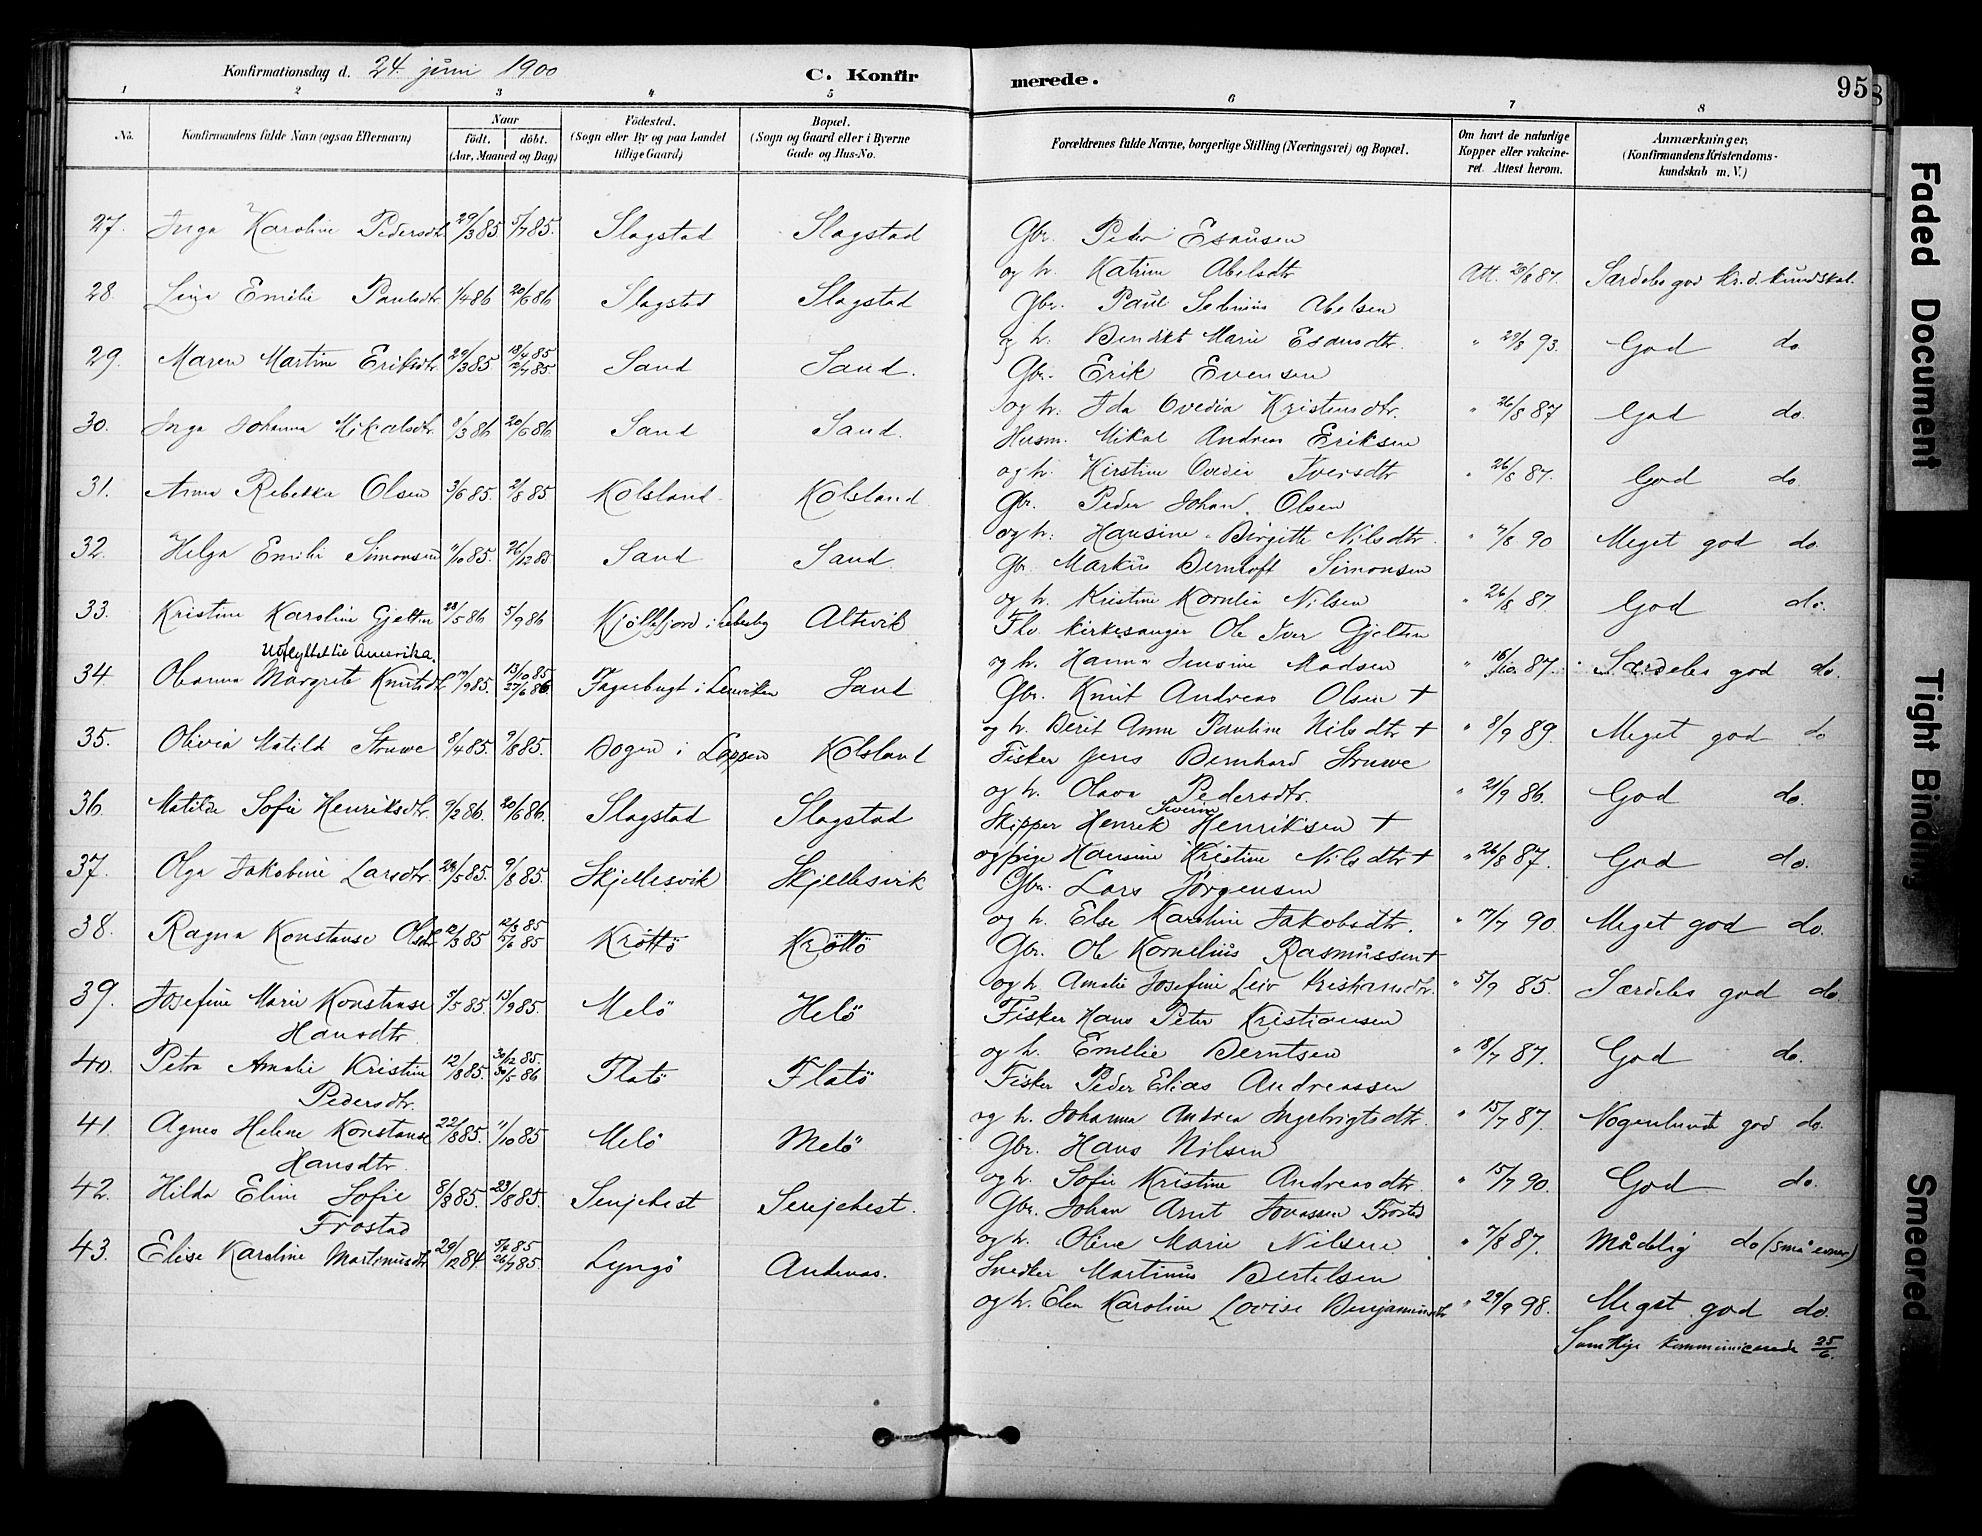 Konfirmationsdag d. 24 juni 1900
C. Konfir
merede.
95
1 2 3 4 5 6 7 8
No. Konfirmandens fulde Navn (ogsaa Efternavn) Naar födt. döbt. (Aar, Maaned og Dag) Födested. (Sogn eller By og paa Landet tillige Gaard) Bopæl. (Sogn og Gaard eller i Byerne Gade og Hus-No. Forældrenes fulde Navne, borgerlige Stilling (Næringsvei) og Bopæl. Om havt de naturlige Kopper eller vakcineret. Attest herom. Anmærkninger. (Konfirmandens Kristendomskundskab m. V.)
27. Inga Karoline Pedersdtr 29/3 85 5/7 85. Slagstad Slagstad Gbr. Peder Esausen
og h. Katrine Abelsdtr Att. 87. Særdeles god kr.d.kundskab.
28. Lina Emilie Paulsdtr 1/4 86 20/6 86 Slagstad Slagstad Gbr. Paul Abelsen
og h. Marie Esausdtr. " 29/8 93. God do
29. Maren Martine Eriksdtr 29/3 85 18/4 85 12/7 85. Sand Sand. Gbr. Erik Evensen
og h. Ida Ovedia Kristensdtr. " 26/8 87 God do.
30. Inga Johanna Mikalsdtr. 8/3 86 20/6 86 Sand Sand. Husm. Mikal Andreas Eriksen
og h. Kirstine Ovedia Iversdtr " 26/8 87. God do.
31. Anna Rebekka Olsen 3/6 85. 2/8 85 Kolsland Kolsland Gbr. Peder Johan Olsen
og h. Hansine Birgitte Nilsdtr. " 7/8 90 Meget god do.
32. Helga Emilie Simonsen 11/10 85. 26/12 85 Sand Sand. Gbr. Markus Berntoft Simonsen
og h. Kristine Kornelia Nilsen " 26/8 87. God do.
33. Kristine Karoline Gjelten 28/5 86 5/9 86 Kjöllefjord i Lebesby Altevik Fhv. kirkesanger Ole Iver Gjelten
Udflyttet til Amerika.
og h. Hanna Jensine Madsen " 16/10 87. Særdeles god do.
34. Oleanna Margrete Knutsdtr 17/9 85. 13/10 85 27/6 86 Fagerbugt i Lenviken Sand Gbr. Knut Andreas Olsen +
og h. Berit Anne Pauline Nilsdtr + " 8/9 89. Meget god do
35. Olivia Matilde Struwe 8/4 85. 9/8 85. Bogen i Loppen Kolsland Fisker Jens Bernhard Struwe
og h. Olava Pedersdtr. " 21/9 86. God do.
36. Matilde Sofie Henriksdtr. 9/2 86. 20/6 86. Slagstad Slagstad Skipper Henrik Henriksen +
og pige Hansine Kristine Nilsdtr + " 26/8 87. God do.
37. Olga Jakobine Larsdtr. 28/5 85. 9/8 85. Skjellesvik Skjellesvik Gbr. Lars Jørgensen
og h. Else Karoline Jakobsdtr. " 17/7 90. Meget god do.
38. Ragna Konstanse Olsdtr 12/3 85 12/3 85 15/6 85 Kröttö Kröttö Gbr. Ole Kornelius Rasmussen +
og h. Amalie Josefine Kristiansdtr. " 5/9 85. Særdeles god do.
39. Josefine Marie Konstanse 5/5 85 13/9 85. Melö Helö Fisker Hans Peter Kristiansen
Hansdtr.
og h. Emelie Berntsen " 18/7 87. God do.
40. Petra Amalie Kristine 12/8 85. 30/12 85. 30/5 86 Flatö Flatö Fisker Peder Elias Andreassen
Pedersdtr.
og h. Johanna Andrea Ingebrigtsdtr. " 15/7 87. Nogenlunde god do.
41. Agnes Helene Konstanse 22/8 85. 11/10 85 Melö Melö Gbr. Hans Nilsen
Hansdtr.
og h. Sofie Kristine Andreasdtr " 15/7 90. God do.
42. Hilda Eline Sofie 8/3 85. 23/8 85. Senjehest Senjehest. Gbr. Johan Arnt Jonassen Frostad
Frostad
og h. Oline Marie Nilsen " 7/8 87. Mådelig do (små evner)
43. Elise Karoline Martinusdtr 29/12 84 26/7 85. Lyngö Andenæs. Snedker Martinus Bertelsen
og h. Elen Karoline Lovise Benjaminsdtr " 29/9 98. Meget god do.
Samtlige kommunicerede 25/6.
Faded Document
Tight Binding
Smeared